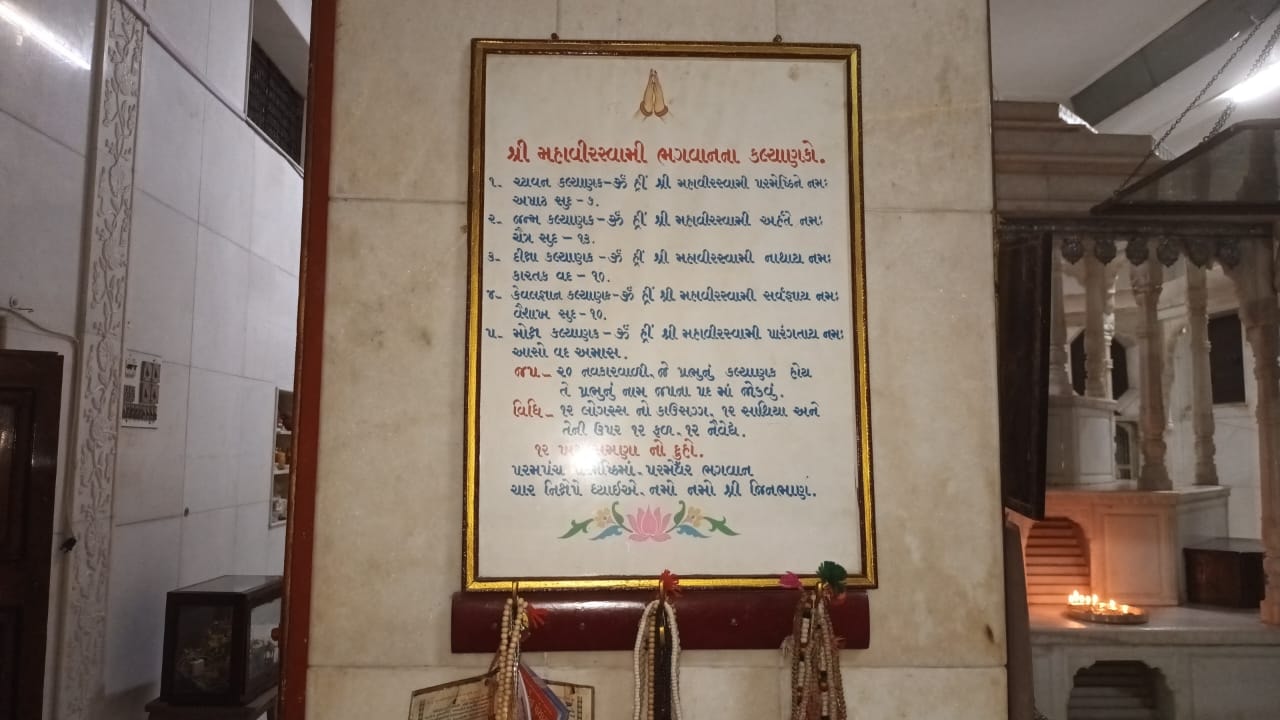 શ્રી મહાવીરસ્વામી ભગવાનના કલ્યાણકો.
૧. ચ્યવન કલ્યાણક-ૐ હ્રીઁ શ્રી મહાવીરસ્વામી પરમેષ્ઠિને નમઃ
અષાઢ સુદ - ૬.
૨. જન્મ કલ્યાણક-ૐ હ્રીઁ શ્રી મહાવીરસ્વામી અર્હતે નમઃ
ચૈત્ર સુદ - ૧૩.
૩. દીક્ષા કલ્યાણક-ૐ હ્રીઁ શ્રી મહાવીરસ્વામી નાથાય નમઃ
કારતક વદ - ૧૦.
૪. કેવલજ્ઞાન કલ્યાણક-ૐ હ્રીઁ શ્રી મહાવીરસ્વામી સર્વજ્ઞાય નમઃ
વૈશાખ સુદ - ૧૦.
૫. મોક્ષ કલ્યાણક-ૐ હ્રીઁ શ્રી મહાવીરસ્વામી પારંગતાય નમઃ
આસો વદ અમાસ.
જાપ- ૨૦ નવકારવાળી. જે પ્રભુનું કલ્યાણક હોય
તે પ્રભુનું નામ જાપના પદ માં જોડવું.
વિધિ- ૧૨ લોગસ્સ નો કાઉસગ્ગ. ૧૨ સાથિયા અને
તેની ઉપર ૧૨ ફળ. ૧૨ નૈવેદ્ય.
૧૨ ખમાસમણા નો દુહો.
પરમપંચ પરમેષ્ઠિમાં. પરમેશ્વર ભગવાન
ચાર નિક્ષેપે ધ્યાઈએ. નમો નમો શ્રી જિનભાણ.